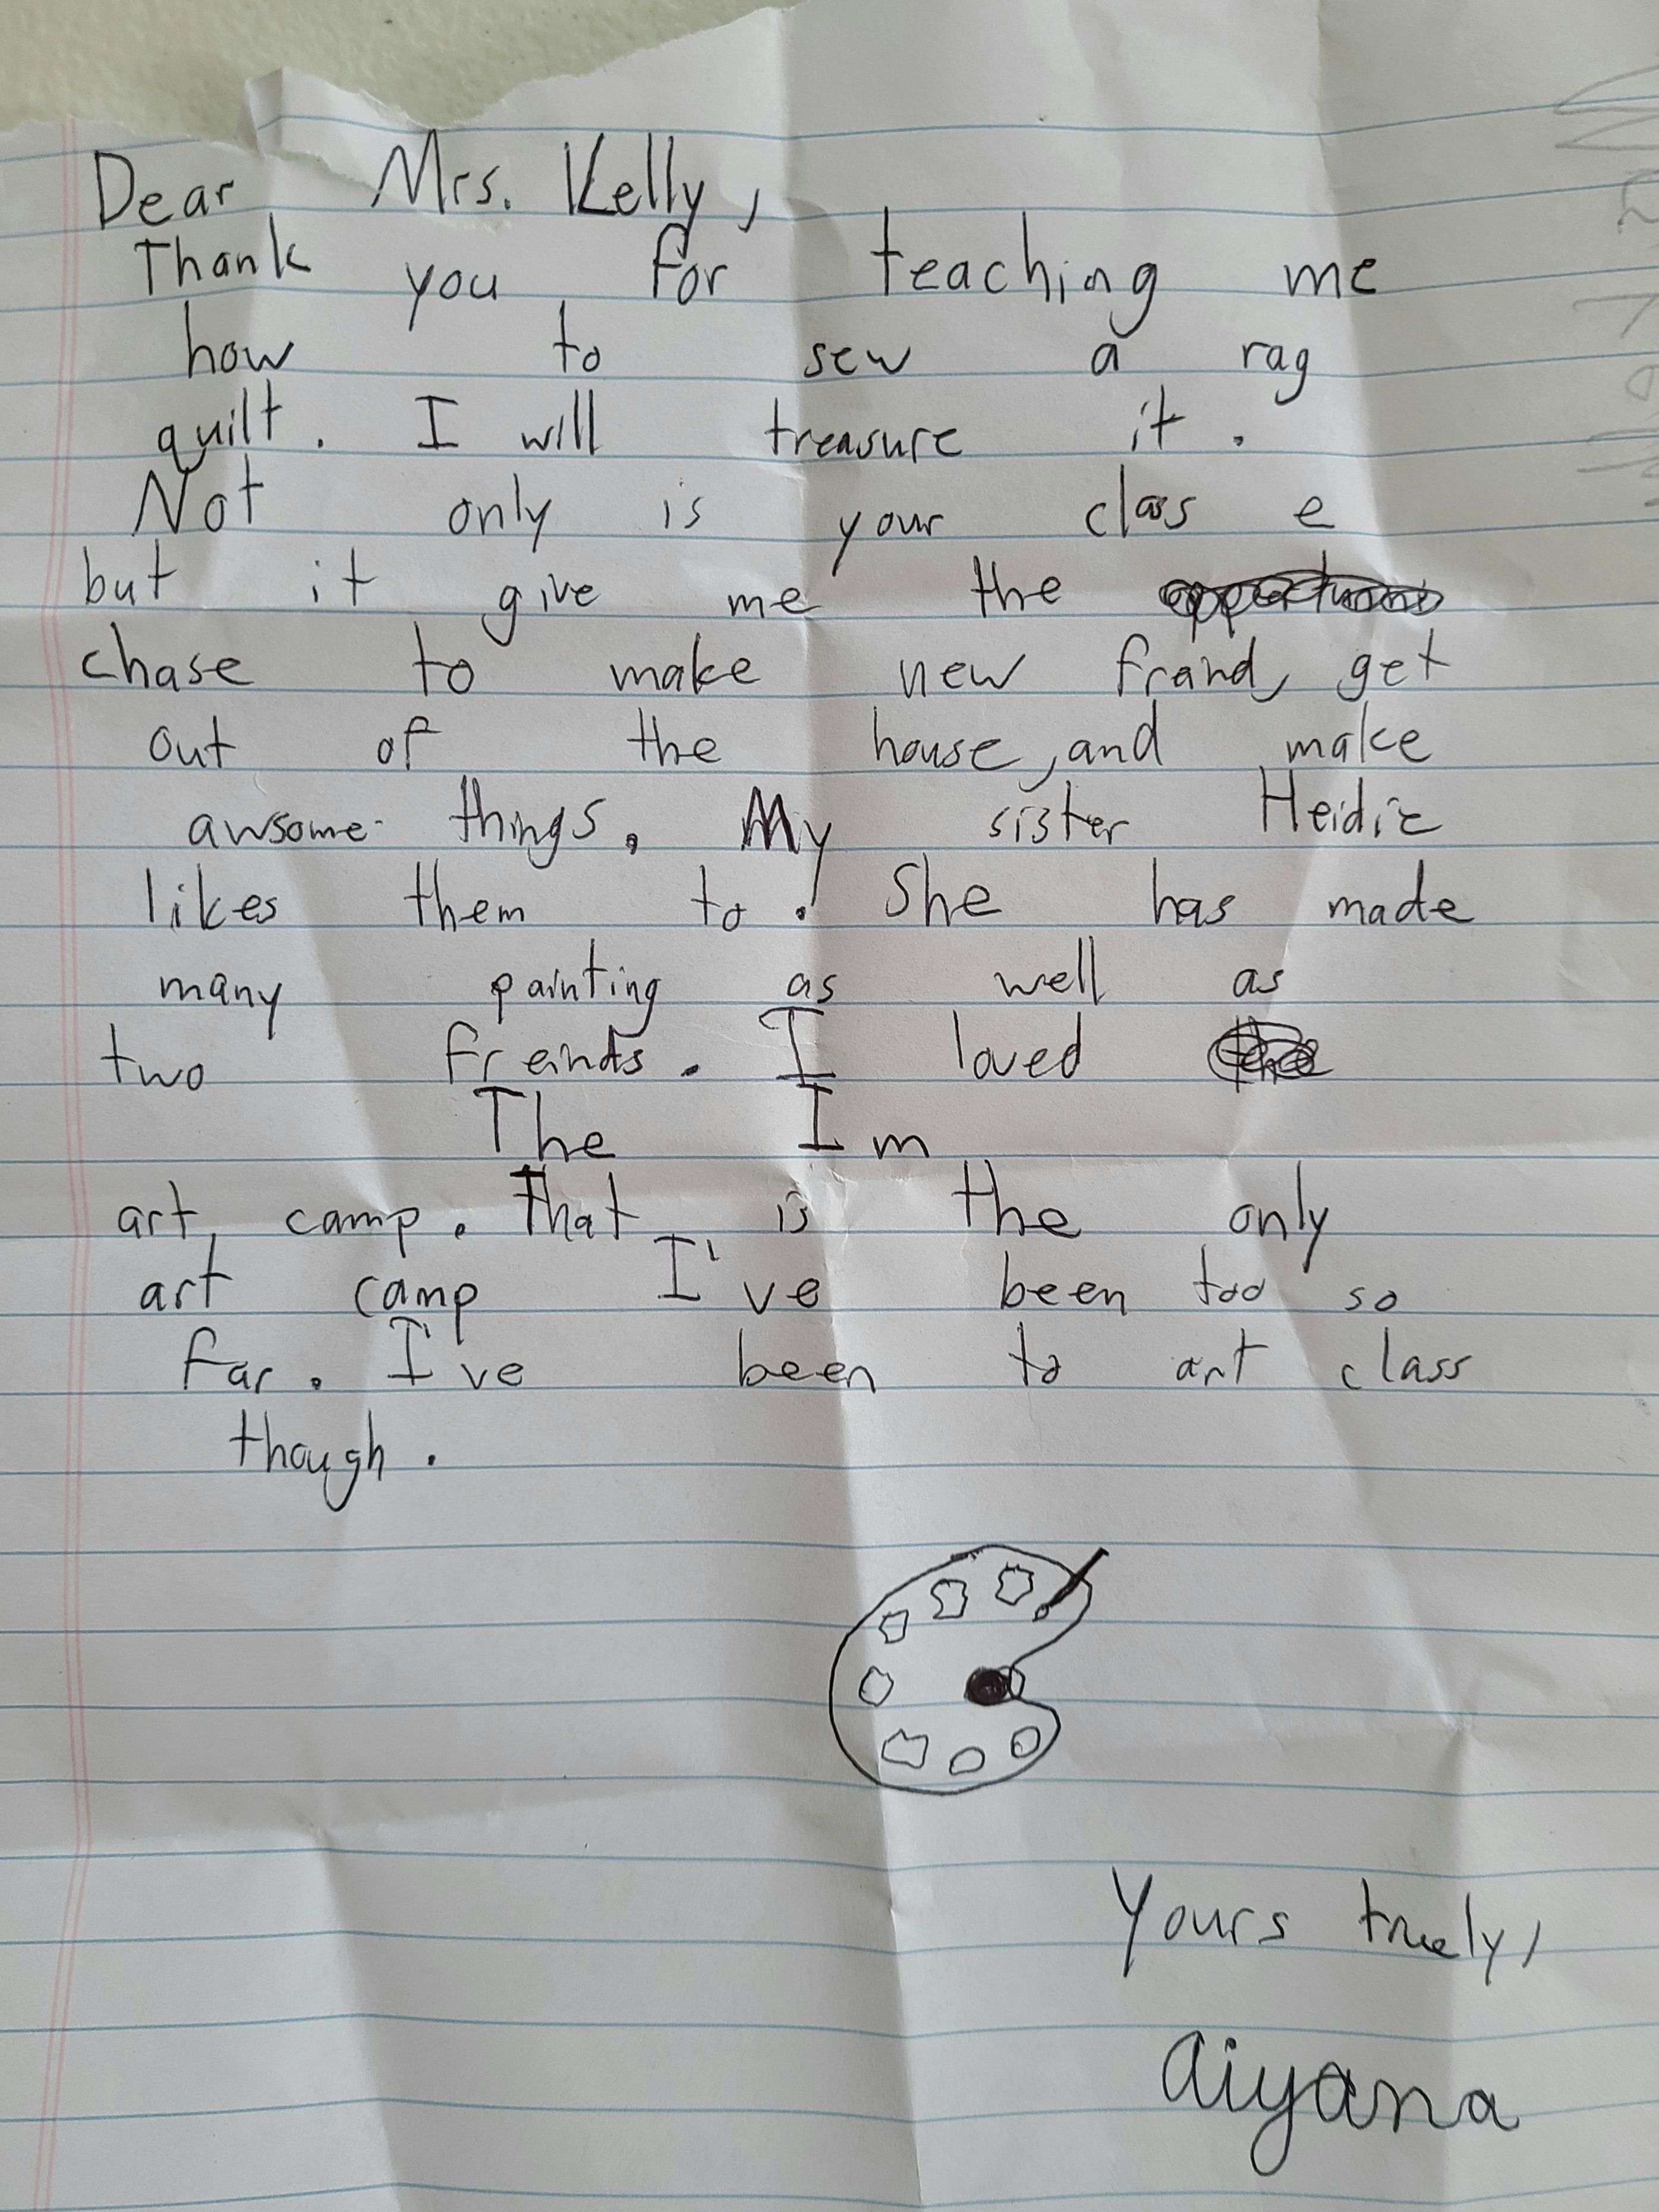 Dear Mrs. Kelly,
Thank you for teaching me
how to sew a rag
quilt. I will treasure it.
Not only is your class e
but it give me the
chase to make new frand, get
out of the house, and make
awsome things. My sister Heidie
likes them to. She has made
many painting as well as
two freinds. I loved
The Im
art camp. That is the only
art camp I've been too so
far. I've been to art class
though.
Yours truely,
aiyana